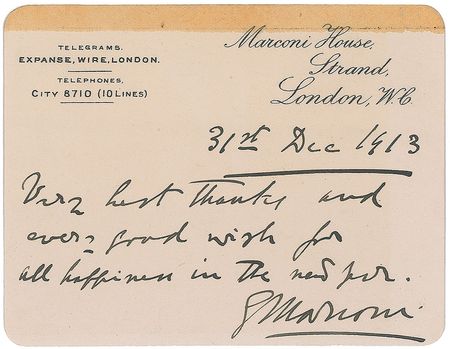 TELEGRAMS.
EXPANSE, WIRE, LONDON.
TELEPHONES,
CITY 8710 (10 LINES)
Marconi House,
Strand,
London, W.C.
31st Dec 1913
Very best thanks and
every good wish for
all happiness in the new year.
GMarconi